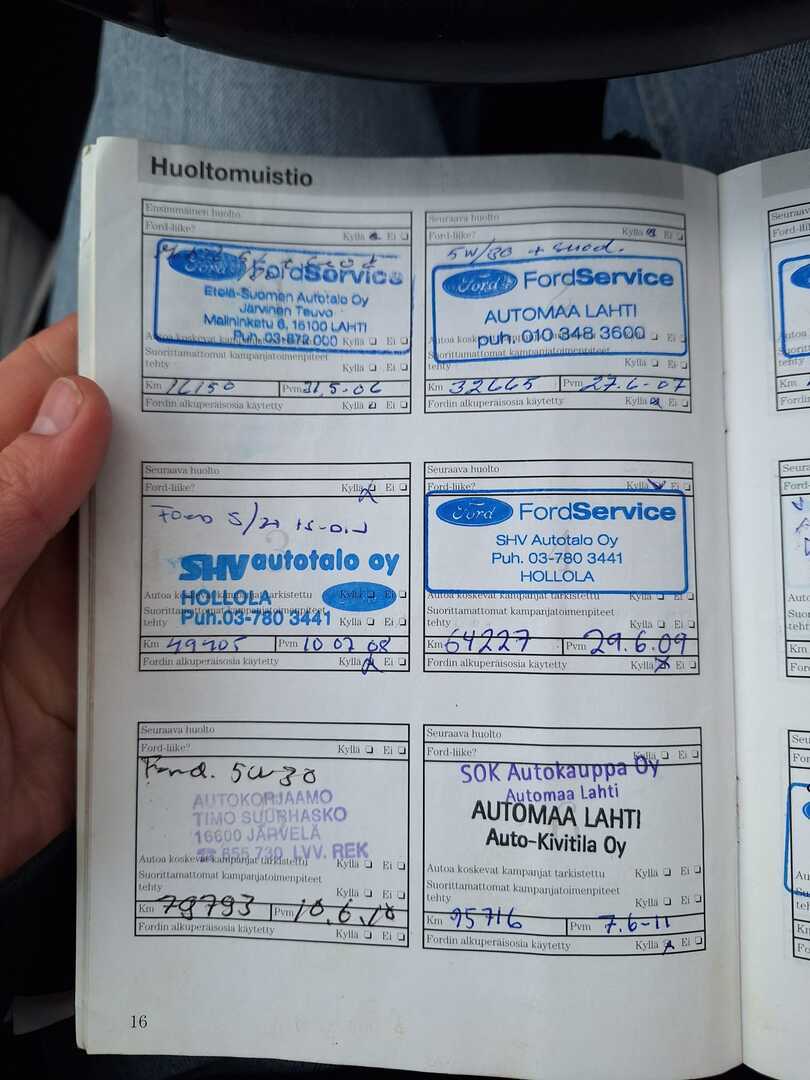 Huoltomuistio
Ensimmäinen huolto
Ford-liike? Kyllä Ei
Ford FordService
Etelä-Suomen Autotalo Oy
Järvinen Teuvo
Malininkatu 6, 15100 LAHTI
Puh. 03-872 000
Autoa koskevat Kyllä Ei
Suorittamattomat kampanjatoimenpiteet
tehty Kyllä Ei
Km 16150 Pvm 31,5-06
Fordin alkuperäisosia käytetty Kyllä Ei
Seuraava huolto
Ford-liike? Kyllä Ei
5W/30 + suod.
Ford FordService
AUTOMAA LAHTI
puh. 010 348 3600
Autoa Ei
Suorittamattomat kampanjatoimenpiteet
tehty Kyllä Ei
Km 32665 Pvm 27.6-07
Fordin alkuperäisosia käytetty Kyllä Ei
Seuraava huolto
Ford-liike? Kyllä Ei
SHV autotalo oy
HOLLOLA
Puh.03-780 3441
Autoa koskevat kampanjat tarkistettu Kyllä Ei
Suorittamattomat kampanjatoimenpiteet
tehty Kyllä Ei
Km 49405 Pvm 10 07 08
Fordin alkuperäisosia käytetty Kyllä Ei
Seuraava huolto
Ford-liike? Kyllä Ei
Ford FordService
SHV Autotalo Oy
Puh. 03-780 3441
HOLLOLA
Autoa koskevat kampanjat tarkistettu Kyllä Ei
Suorittamattomat kampanjatoimenpiteet
tehty Kyllä Ei
Km 64227 Pvm 29.6.09
Fordin alkuperäisosia käytetty Kyllä Ei
Seuraava huolto
Ford-liike? Kyllä Ei
Ford. 5W30
AUTOKORJAAMO
TIMO SUURHASKO
16600 JÄRVELÄ
☎ 655 730, LVV. REK
Autoa koskevat kampanjat tarkistettu Kyllä Ei
Suorittamattomat kampanjatoimenpiteet
tehty Kyllä Ei
Km 79793 Pvm 10.6.10
Fordin alkuperäisosia käytetty Kyllä Ei
Seuraava huolto
Ford-liike? Kyllä Ei
SOK Autokauppa Oy
Automaa Lahti
AUTOMAA LAHTI
Auto-Kivitila Oy
Autoa koskevat kampanjat tarkistettu Kyllä Ei
Suorittamattomat kampanjatoimenpiteet
tehty Kyllä Ei
Km 95716 Pvm 7.6-11
Fordin alkuperäisosia käytetty Kyllä Ei
16